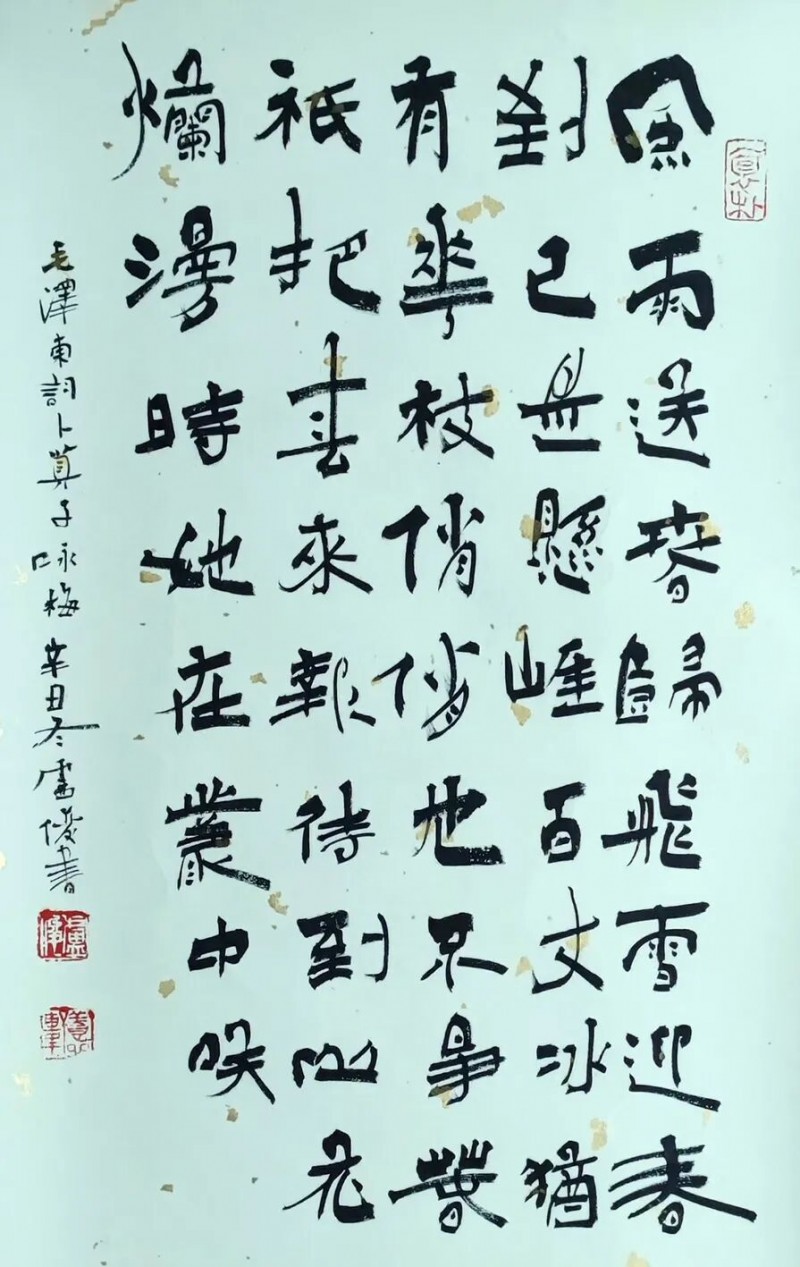 風雨送春歸飛雪迎春
到已是懸崖百丈冰猶
有華枝俏俏也不爭春
祇把春來報待到山花
爛漫時她在叢中咲
毛澤東詞卜算子咏梅 辛丑冬盧俊書